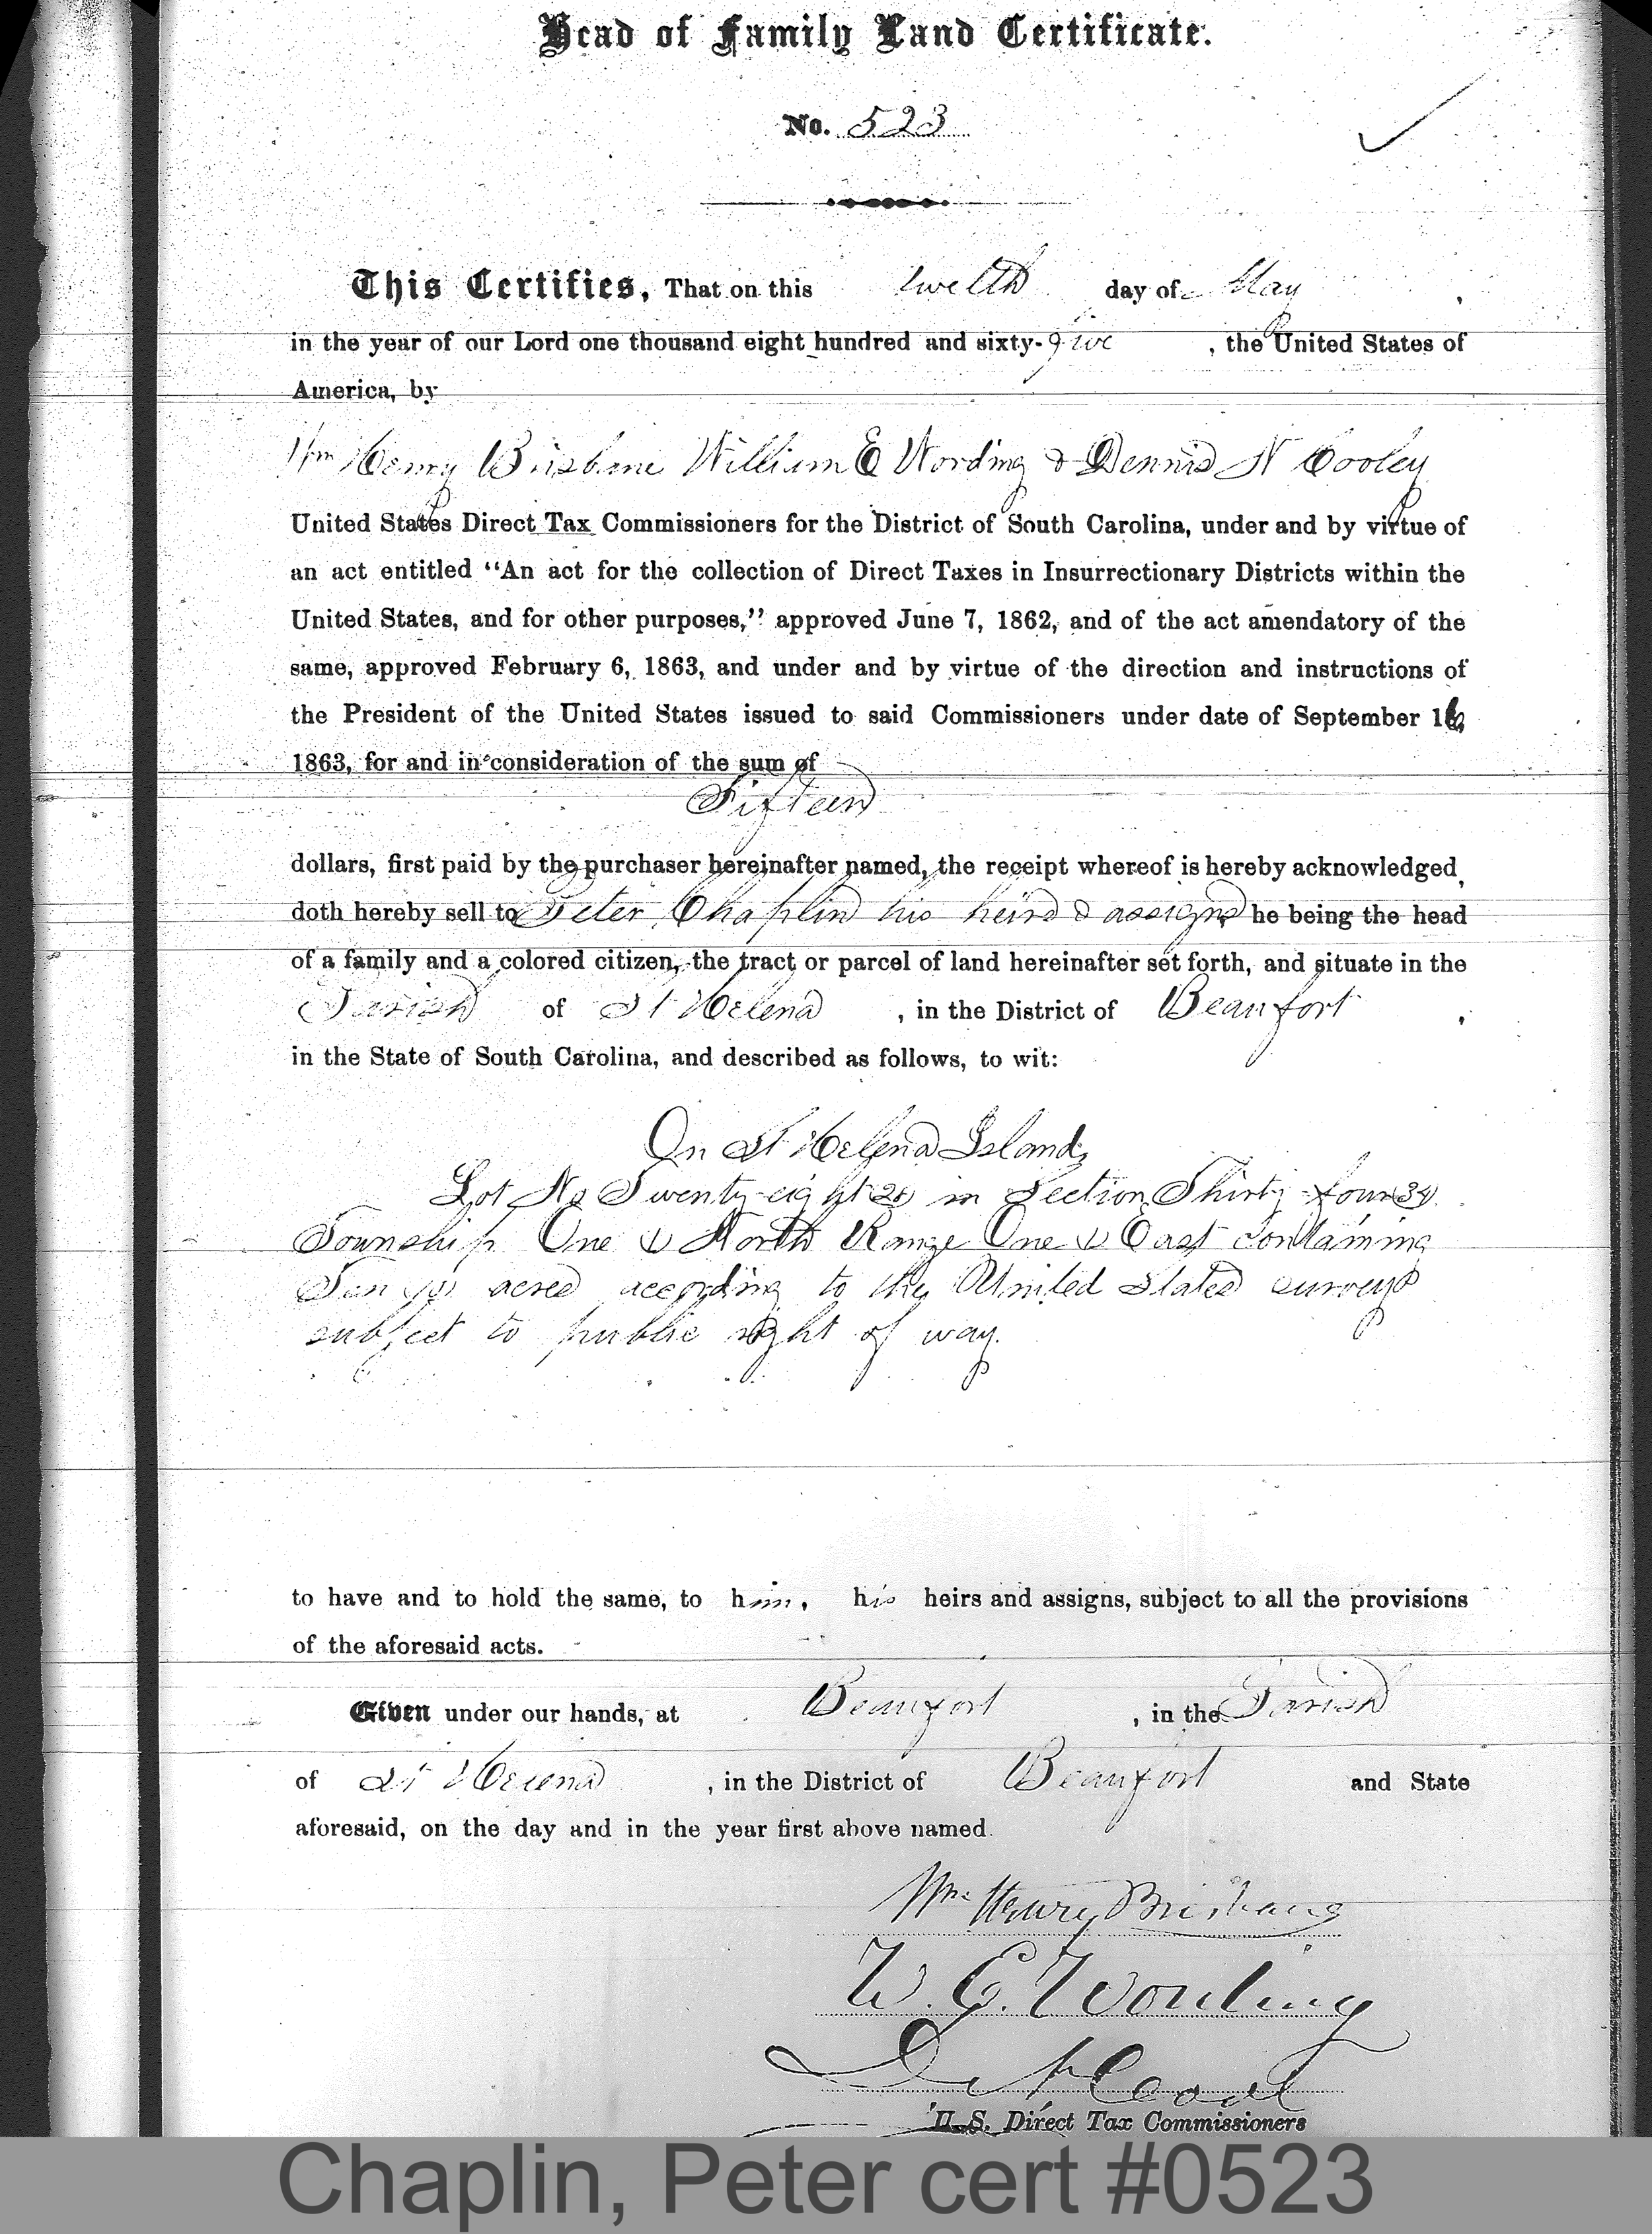 Head of Family Land Certificate.
No. 523
This Certifies, That on this twelth day of May,
in the year of our Lord one thousand eight hundred and sixty-five, the United States of
America, by
Wm Henry Brisbane William E Wording & Dennis N Cooley
United States Direct Tax Commissioners for the District of South Carolina, under and by virtue of
an act entitled "An act for the collection of Direct Taxes in Insurrectionary Districts within the
United States, and for other purposes," approved June 7, 1862, and of the act amendatory of the
same, approved February 6, 1863, and under and by virtue of the direction and instructions of
the President of the United States issued to said Commissioners under date of September 16,
1863, for and in consideration of the sum of
Fifteen
dollars, first paid by the purchaser hereinafter named, the receipt whereof is hereby acknowledged,
doth hereby sell to Peter Chaplin his heirs & assigns he being the head
of a family and a colored citizen, the tract or parcel of land hereinafter set forth, and situate in the
Parish of St Helena, in the District of Beaufort,
in the State of South Carolina, and described as follows, to wit:
On St Helena Island,
Lot No Twenty-eight 28 in Section Thirty-four 34
Township One (1) North Range One (1) East containing
Ten (10) acres according to the United States surveys
subject to public right of way.
to have and to hold the same, to him, his heirs and assigns, subject to all the provisions
of the aforesaid acts.
Given under our hands, at Beaufort, in the Parish
of St Helena, in the District of Beaufort and State
aforesaid, on the day and in the year first above named.
Wm. Henry Brisbane
W. E. Wording
D N Cooley
U. S. Direct Tax Commissioners
Chaplin, Peter cert #0523